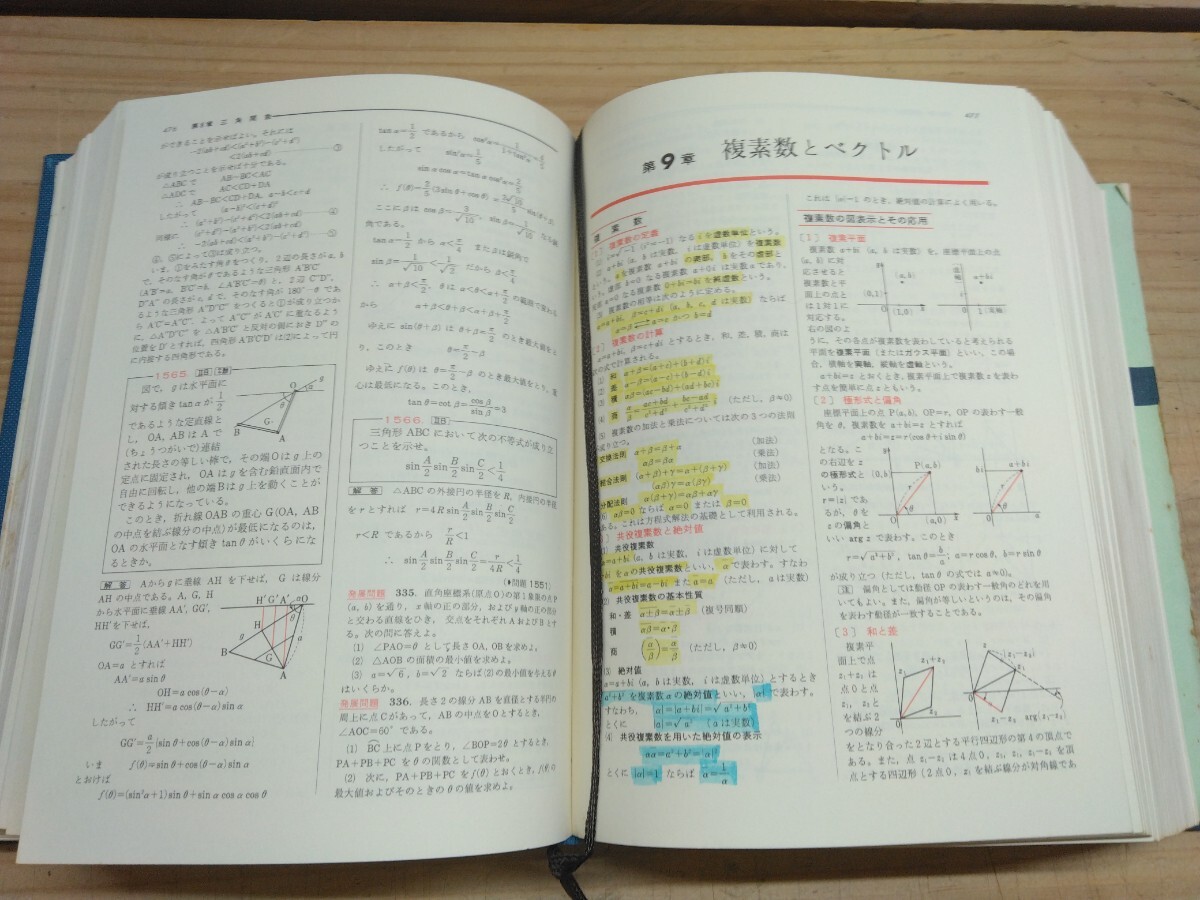 476 第8章 三角関数
ができることを示せばよい。それには
-2(ab+cd)<(a²+b²)-(c²+d²)
<2(ab+cd) ③
が成り立つことを示せば十分である。
△ABCで AB-BC<AC
△ADCで AC<CD+DA
∴ AB-BC<CD+DA, a-b<c+d
したがって (a-b)²<(c+d)²
∴ (a²+b²)-(c²+d²)<2(ab+cd) ④
同様に
∴ -2(ab+cd)<(a²+b²)-(c²+d²) ⑤
④, ⑤によって③は成り立つ。
1565
図で, gは水平面に
対する傾き tanα が 1/2
であるような定直線と
し, OA, ABはAで
(ちょうつがいで)連結
された長さの等しい棒で, その端Oはg上の
定点に固定され, OAはgを含む鉛直面内で
自由に回転し, 他の端Bはg上を動くことが
できるようになっている。
このとき, 折れ線OABの重心G(OA, AB
の中点を結ぶ線分の中点)が最低になるのは,
OAの水平面となす傾き tanθ がいくらにな
るときか。
解答 Aからgに垂線AHを下せば, Gは線分
AHの中点である。A, G, H
から水平面に垂線AA′, GG′,
HH′を下せば,
GG′=1/2(AA′+HH′)
OA=a とすれば
AA′=a sinθ
OH=a cos(θ-α)
∴ HH′=a cos(θ-α)sinα
したがって
GG′=a/2{sinθ+cos(θ-α)sinα}
いま f(θ)=sinθ+cos(θ-α)sinα
とおけば
f(θ)=(sin²α+1)sinθ+sinα cosα cosθ
tanα=1/2 であるから cos²α=1/(1+tan²α)=4/5
したがって sin²α=1/5
sinα cosα=tanα cos²α=2/5
ここに β は cosβ=3/√10, sinβ=1/√10 なる鋭
角である。
tanα=1/2 から α<π/4 また β は鋭角で
sinβ=1/√10<1/√2 だから β<π/4
∴ α+β<π/2, θ は α<θ<α+π/2 の範囲で変わる
から α+β<θ+β<α+β+π/2
ゆえに sin(θ+β) は θ+β=π/2 のとき最大値をと
り, このとき θ=π/2-β
ゆえに f(θ) は θ=π/2-β のとき最大値をとり, 重
心は最低になる。このとき,
tanθ=cotβ=cosβ/sinβ=3
1566 ⅡB
三角形ABCにおいて次の不等式が成り立
つことを示せ。
sin A/2 sin B/2 sin C/2 < 1/4
解答 △ABCの外接円の半径をR, 内接円の半径
をrとすれば r=4R sin A/2 sin B/2 sin C/2
r<R であるから r/R<1
∴ sin A/2 sin B/2 sin C/2 = r/4R < 1/4
(問題1551)
発展問題 335. 直角座標系(原点O)の第1象限の点P
(a, b)を通り, x軸の正の部分, およびy軸の正の部分
と交わる直線をひき, 交点をそれぞれAおよびBとす
る。次の問に答えよ。
(1) ∠PAO=θ として長さOA, OBを求めよ。
(2) △AOBの面積の最小値を求めよ。
(3) a=√6, b=√2 ならば(2)の最小値を与えるθ
はいくらか。
発展問題 336. 長さ2の線分ABを直径とする半円の
周上に点Cがあって, ABの中点をOとするとき,
∠AOC=60°である。
(1) BC上に点Pをとり, ∠BOP=2θとするとき,
PA+PB+PCをθの関数として表わせ。
(2) 次に, PA+PB+PCをf(θ)とおくとき, f(θ)の
最大値およびそのときのθの値を求めよ。
477
第9章 複素数とベクトル
複素数
[1] 複素数の定義
(1) i=√-1 (i²=-1) なるiを虚数単位という。
(2) a+bi (a, bは実数, iは虚数単位)を複素数
α=a+bi, β=c+di (a, b, c, dは実数) ならば
α=β⇄a=c かつ b=d
[2] 複素数の計算
α=a+bi, β=c+di とするとき, 和, 差, 積, 商は
次の式で計算される。
(1) 和 α+β=(a+c)+(b+d)i
(2) 差 α-β=(a-c)+(b-d)i
(3) 積 αβ=(ac-bd)+(ad+bc)i
(4) 商 α/β=(ac+bd)/(c²+d²)+(bc-ad)/(c²+d²) i (ただし, β≠0)
(5) 複素数の加法と乗法については次の3つの法則
が成り立つ。
交換法則 α+β=β+α (加法)
αβ=βα (乗法)
結合法則 (α+β)+γ=α+(β+γ) (加法)
(αβ)γ=α(βγ) (乗法)
分配法則 α(β+γ)=αβ+αγ
(6) αβ=0 ならば α=0 または β=0
である。これは方程式解法の基礎として利用される。
[3] 共役複素数と絶対値
(1) 共役複素数
α=a+bi (a, bは実数, iは虚数単位)に対して
a-bi をαの共役複素数といい, ᾱで表わす。すなわ
ち ᾱ=a+bi=a-bi また ā=a (ただし, aは実数)
(2) 共役複素数の基本性質
和・差 α±β=ᾱ±β̄ (複号同順)
積 αβ=ᾱ・β̄
商 (α/β)=ᾱ/β̄ (ただし, β≠0)
(3) 絶対値
α=a+bi (a, bは実数, iは虚数単位)とするとき
√a²+b² を複素数αの絶対値といい, |α|で表わす。
すなわち, |α|=|a+bi|=√a²+b²
とくに |a|=√a² (aは実数)
(4) 共役複素数を用いた絶対値の表示
αᾱ=a²+b²=|α|²
とくに |α|=1 ならば ᾱ=1/α
これは |α|=1 のとき, 絶対値の計算によく用いる。
複素数の図表示とその応用
[1] 複素平面
複素数 a+bi (a, bは実数)を, 座標平面上の点
(a, b)に対
応させると
複素数と平
面上の点と
は1対1に
対応する。
右の図のよ
うに, その各点が複素数を表わしていると考えられる
平面を複素平面(またはガウス平面)といい, この場
合, 横軸を実軸, 縦軸を虚軸という。
a+bi=z とおくとき, 複素平面上で複素数zを表わ
す点を簡単に点zともいう。
[2] 極形式と偏角
座標平面上の点P(a, b), OP=r, OPの表わす一般
角をθ, 複素数を a+bi=z とすれば
a+bi=r(cosθ+i sinθ)
となる。こ
の右辺をz
の極形式と
いう。
r=|z|であ
るが, θを
zの偏角と
いい arg z で表わす。このとき
r=√a²+b², tanθ=b/a; a=r cosθ, b=r sinθ
が成り立つ(ただし, tanθの式では a≠0)。
[注] 偏角としては動径OPの表わす一般角のどれを用
いてもよい。また, 偏角が等しいというのは, その偏角
を表わす動径が一致することである。
[3] 和と差
複素平
面上で点
z₁+z₂
は点0と点
z₁, z₂と
を結ぶ2
つの線分
をとなり合った2辺とする平行四辺形の第4の頂点で
ある。また, 点z₁-z₂は4点0, z₁, z₁-z₂を頂
点とする四辺形(2点0, z₁を結ぶ線分が対角線であ